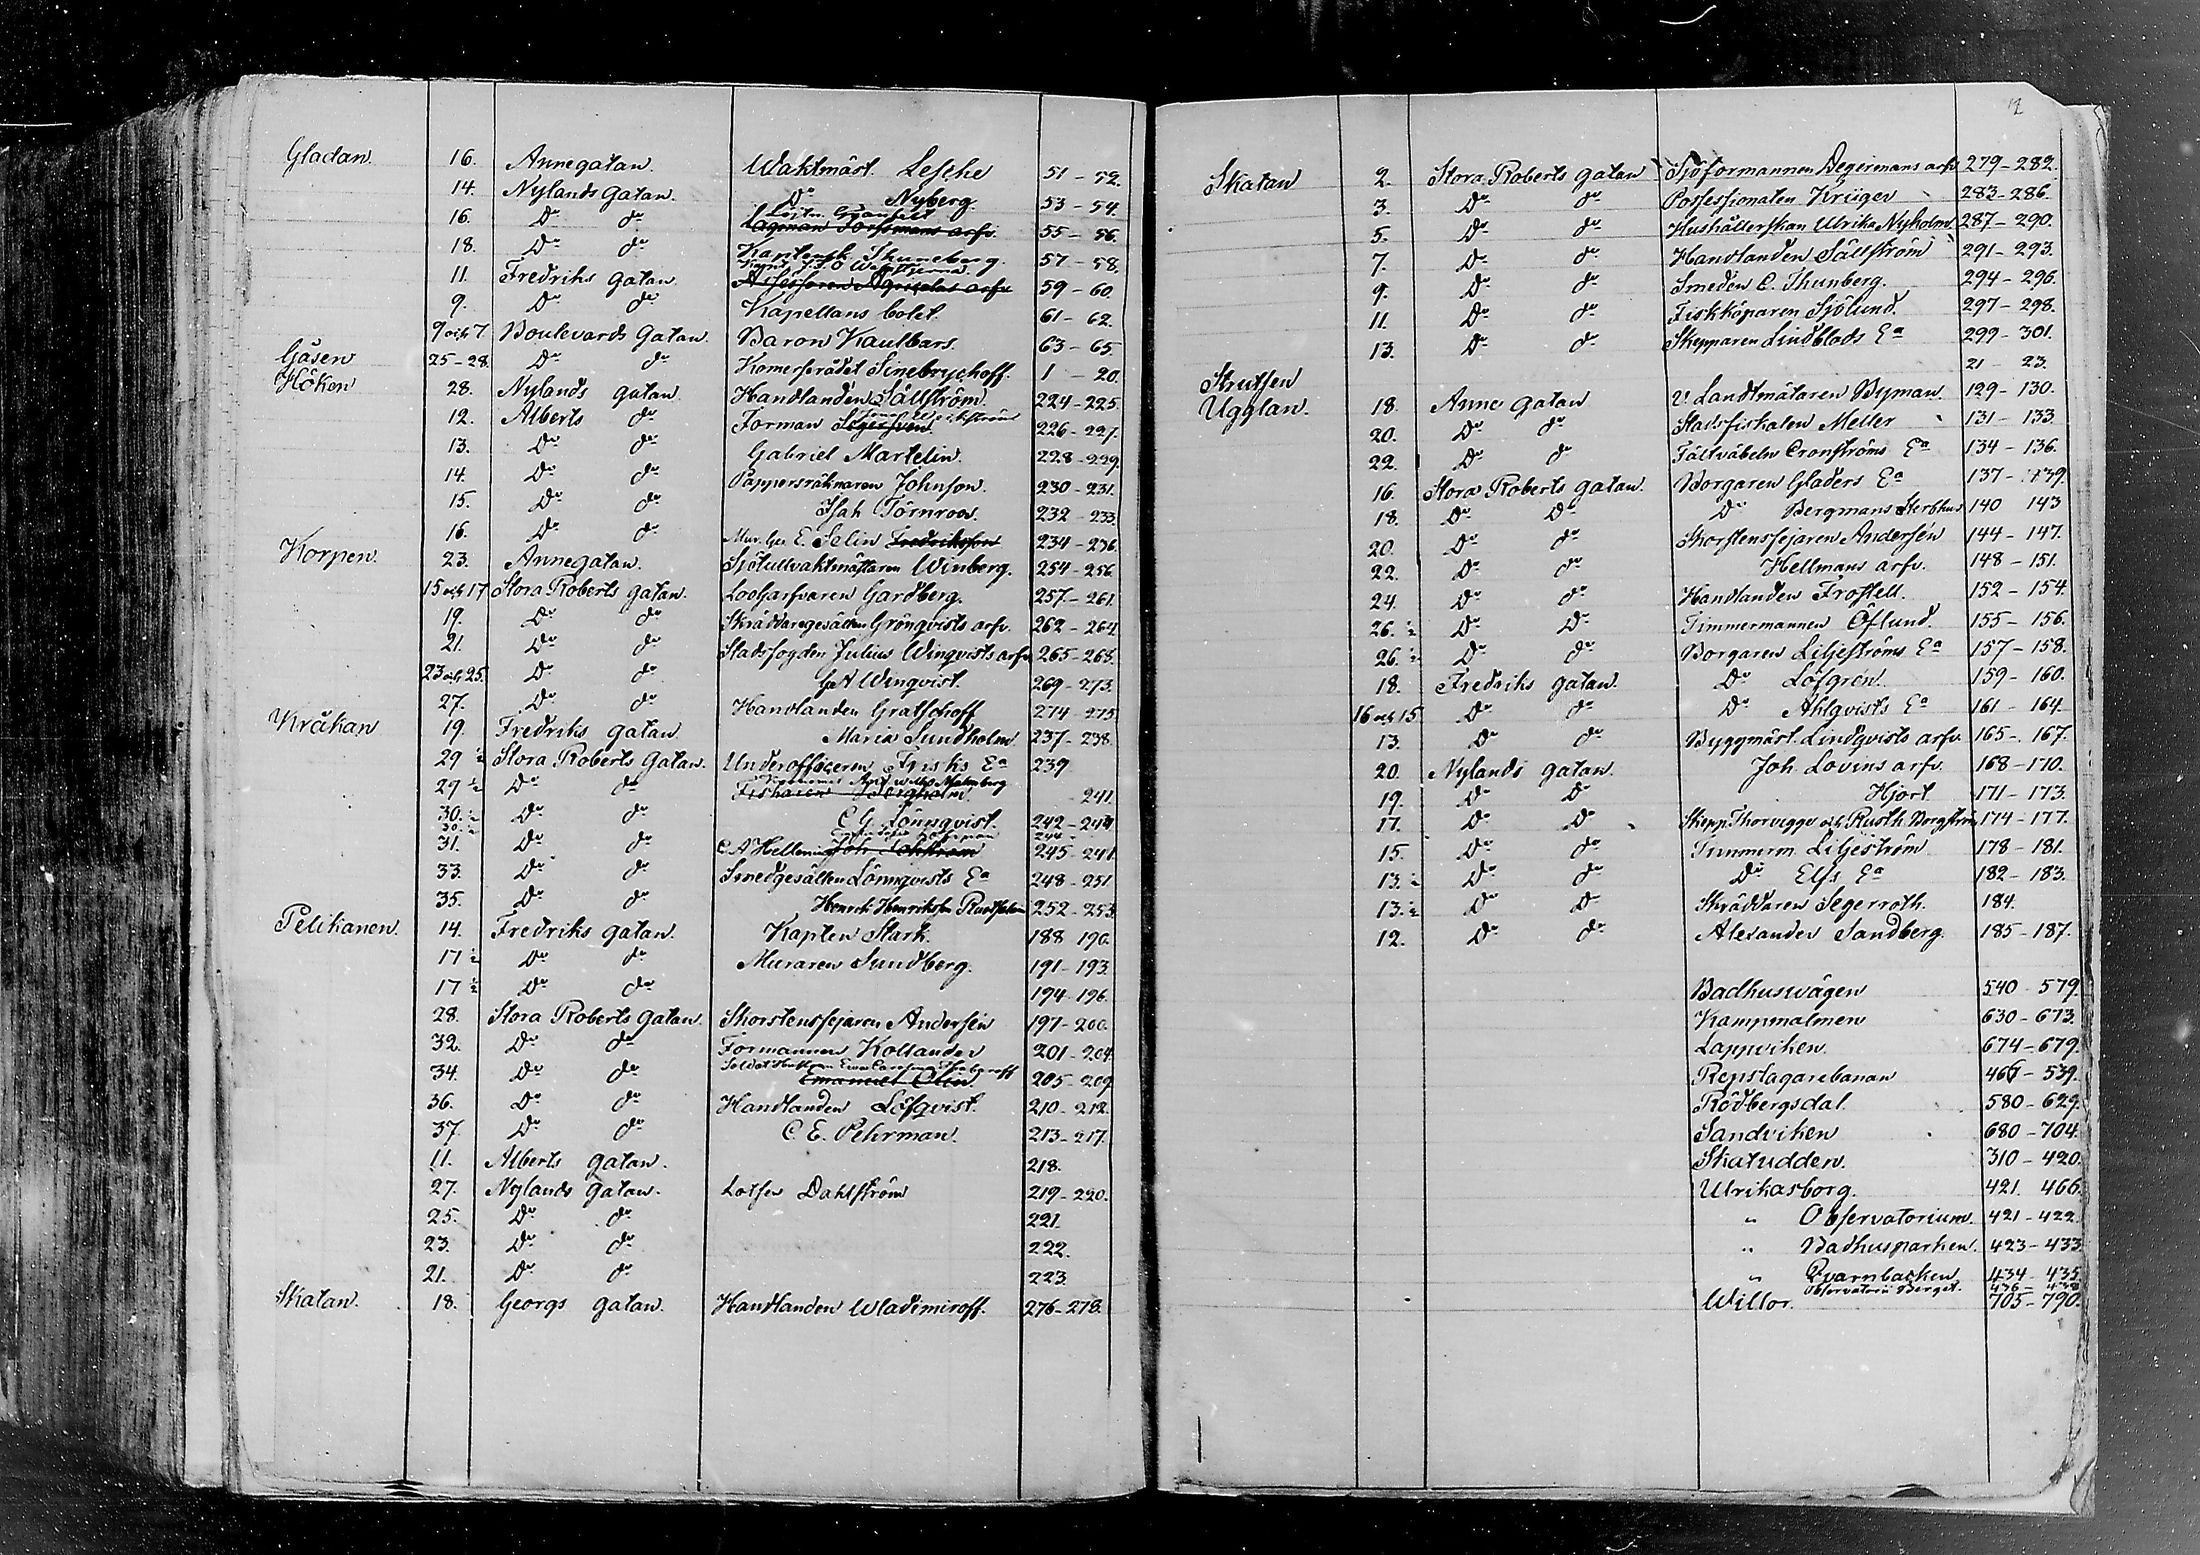 Gladan. 16. Annegatan. Waktmäst. Lesche 51 - 52.
14. Nylands Gatan. Do Nyberg. 53 - 54.
16. Do do Lagman Forssmans arfv. 55 - 56.
18. Do do Kaptensk. Thuneberg. 57 - 58.
11. Fredriks gatan. Assessoren Agricolas arfv 59 - 60.
9. Do do Kapellans bolet. 61 - 62.
9 och 7. Boulevards Gatan. Baron Kaulbars. 63 - 65.
Gåsen 25-28. Do do Komerserådet Sinebrychoff. 1 - 20.
Höken 28. Nylands gatan. Handlanden Sällström. 224-225.
12. Alberts do Forman Segersven. 226-227.
13. Do do Gabriel Martelin. 228-229.
14. Do do Pappersräknaren Johnson. 230-231.
15. Do do Isak Törnroos. 232-233.
16. Do do Mur. Ges. E. Selin Fredriksson 234-236.
Korpen. 23. Annegatan. Sjötullvaktmästaren Winberg. 254-256.
15 och 17 Stora Roberts gatan. Lodgarfvaren Gardberg. 257-261.
19. Do do Skräddaregesällen Grönqvists arfv. 262-264
21. Do do Stadsfogden Julius Winqvists arfv. 265-268.
23 och 25. Do do G A Winqvist. 269-273.
27. Do do Handlanden Gratschoff 274-275
Kråkan 19. Fredriks gatan. Maria Sundholm 237-238.
29 ½ Stora Roberts Gatan. Underofficeren Frisks Ea 239
29 ½ Do do Fiskaren Bergholm. - 241.
30. ½ Do do C G Lönnqvist. 242-244
30. ½
31. Do do C A Hellenius Joh. 245-247.
33. Do do Smedgesällen Lönnqvists Ea 248-251
35. Do do Henrik Henriksson 252-253
Pelikanen. 14. Fredriks gatan. Kapten Stark. 188-190.
17 ½ Do do Muraren Sundberg. 191-193.
17 ½ Do do 194-196.
28. Stora Roberts gatan. Skorstenssejaren Andersén 197-200.
32. Do do Formannen Kollander 201-204.
34. Do do Emanuel Olin 205-209
36. Do do Handlanden Löfqvist. 210-212.
37. Do do C. E. Pehrman. 213-217.
11. Alberts gatan. 218.
27. Nylands gatan. Lotsen Dahlström 219-220.
25. Do do 221.
23. Do do 222.
21. Do do 223
Skatan. 18. Georgs gatan. Handlanden Wladimiroff. 276-278.
Skatan 2. Stora Roberts gatan Sjöformannen Aegermans arfv 279-282.
3. Do do Possessionaten Krüger 283-286.
5. Do do Hushållerskan Ulrika Nyholm 287-290.
7. Do do Handlanden Sällström 291-293.
9. Do do Smeden C. Thunberg. 294-296.
11. Do do Fiskköparen Sjölund. 297-298.
13. Do do Skepparen Lindblads Ea 299-301.
Strutsen 21 - 23.
Ugglan. 18. Anne gatan v. Landtmätaren Byman 129-130.
20. Do do Stadsfiskalen Meller 131-133.
22. Do do Fältväbeln Cronströms Ea 134-136.
16. Stora Roberts gatan. Borgaren Gladers Ea 137-139.
18. Do Do Do Bergmans Sterbhus 140 143
20. Do do Skorstenssejaren Andersén 144-147.
22. Do do Hellmans arfv. 148-151.
24. Do do Handlanden Frostell. 152-154.
26. ½ Do Do Timmermannen Öflund. 155-156.
26. ½ Do do Borgaren Liljeströms Ea 157-158.
18. Fredriks gatan. Do Löfgren. 159-160.
16 och 15 Do do Do Ahlqvists Ea 161-164
13. Do do Byggmäst. Lindqvists arfv. 165-167.
20. Nylands gatan. Joh. Lovens arfv. 168-170.
19. Do Do Hjort 171-173.
17. Do Do Skepp. Thorvigge och Rusth. Borgström 174-177.
15. Do do Timmerm. Liljeström 178-181.
13. ½ Do do Do Elfs Ea 182-183.
13. ½ Do Do Skräddaren Segerroth. 184.
12. Do do Alexander Sandberg. 185-187.
Badhuswägen 540 - 579.
Kampmalmen 630-673.
Lappviken. 674-679.
Repslagarebanan 467-539.
Rödbergsdal. 580-629.
Sandviken 680-704.
Skatudden. 310-420.
Ulrikasborg. 421. 466.
" Observatorium. 421-422.
" Badhusparken. 423-433
" Qvarnbacken 434-435
Observatorii Berget. 436-438
Willor. 705-790.